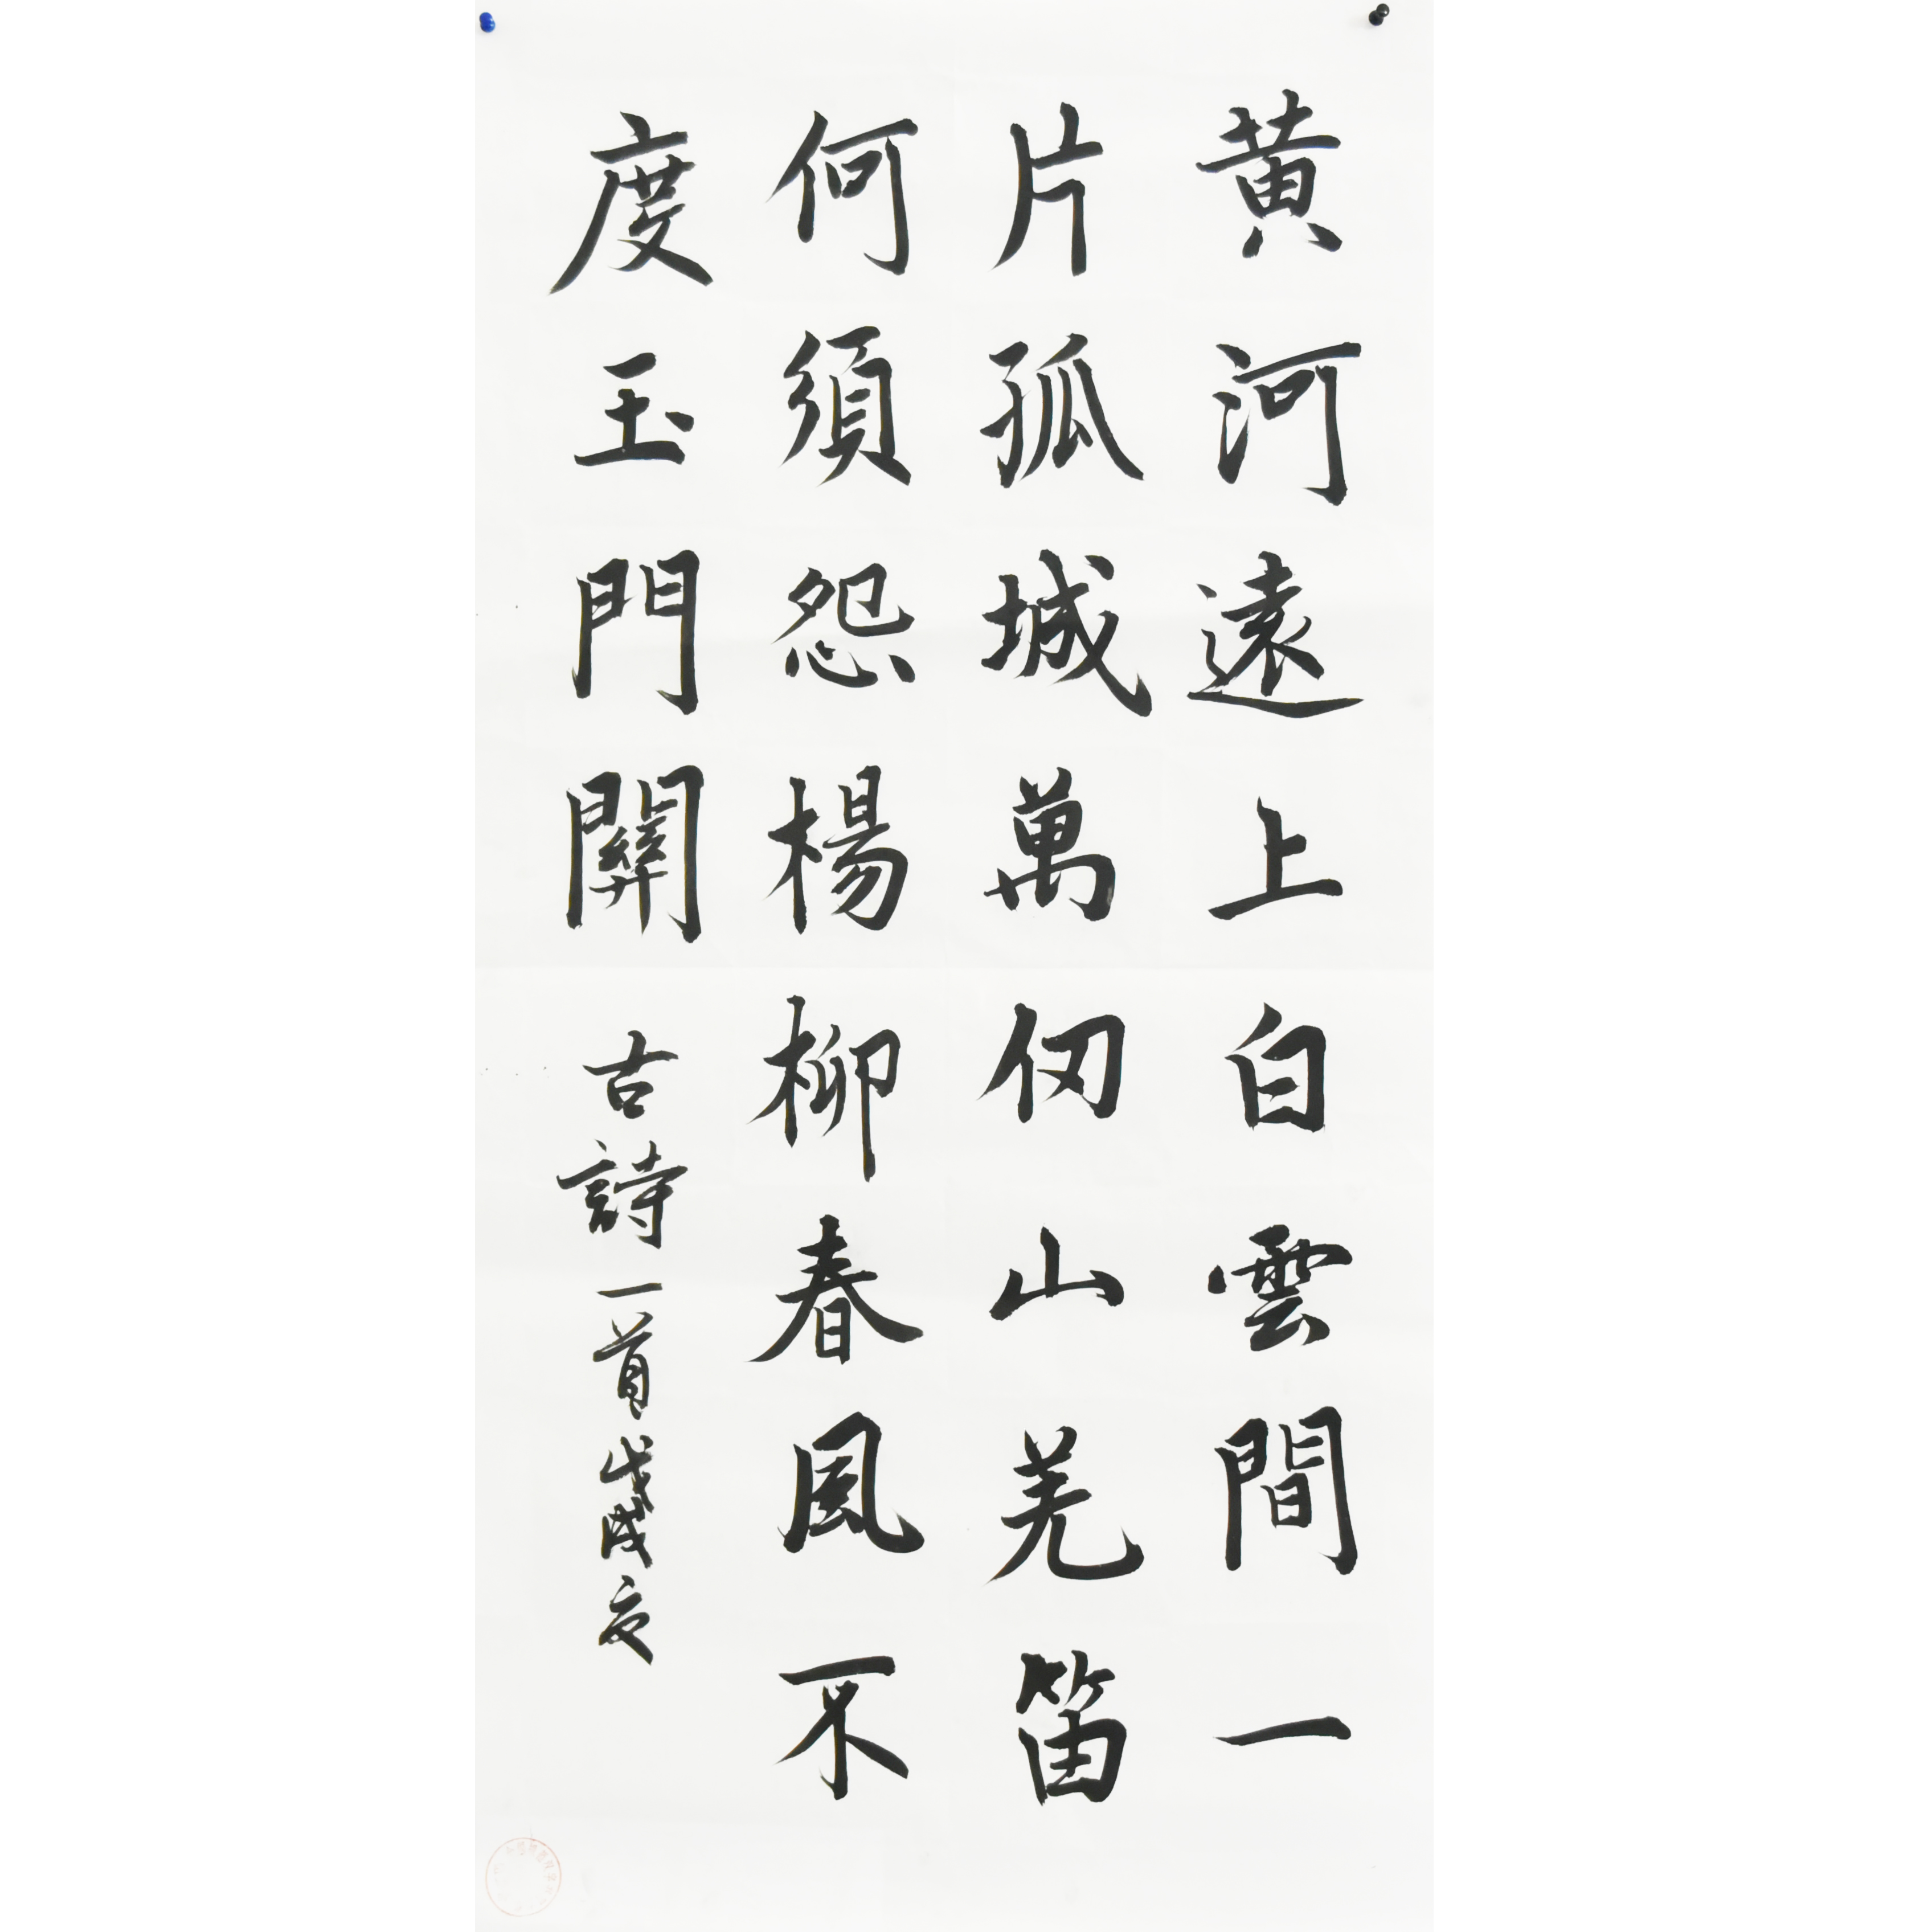 黄河遠上白雲間一
片孤城萬仞山羌笛
何須怨楊柳春風不
度玉門關
古詩一首戊戌夏